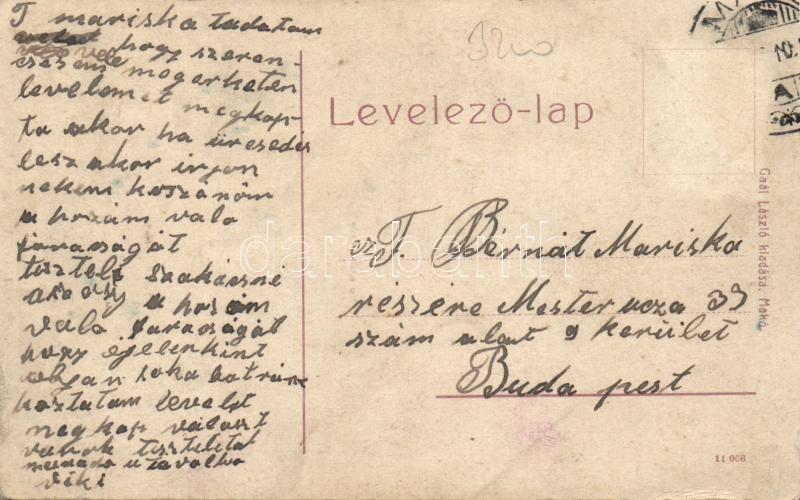 T mariska tudatom
hogy szeren-
csésme megerketen
levelemet megkap-
ta akor ha üresedés
lesz akor irjon
nekem koszánöm
a hozám valo
faraságát
tisztelt Szakácsné
a hozám
valo faraságát
hogy éjelenkint
olyan soka
hoztatam levelet
meg kap választ
varok tisztelettel
viki
3200
Levelezö-lap
T. Bérnát Mariska
részére Mester ucza 39
szám alat 9 kerület
Buda pest
Gaál László kiadása. Makó.
11 006
darabanth